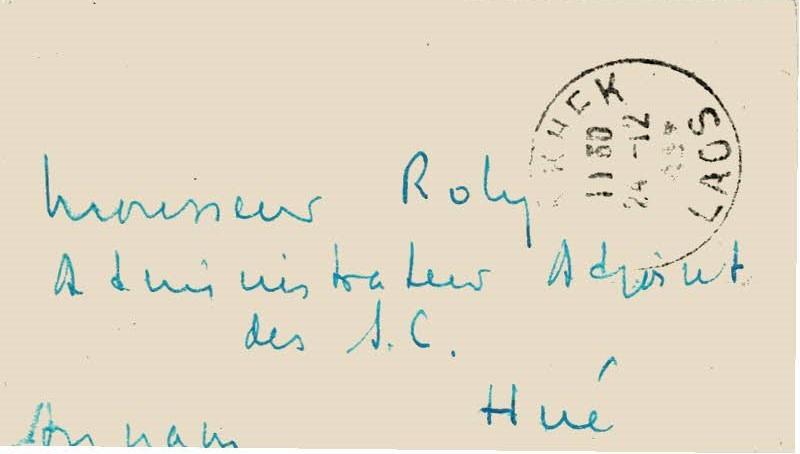 KHEK
11 30
24 -12
LAOS
Monsieur Roly
Administrateur Adjoint
des S.C.
Hué
Annam